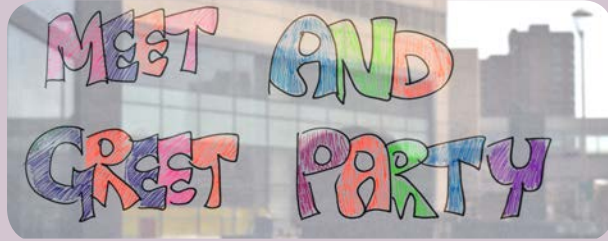 MEET AND
GREET PARTY